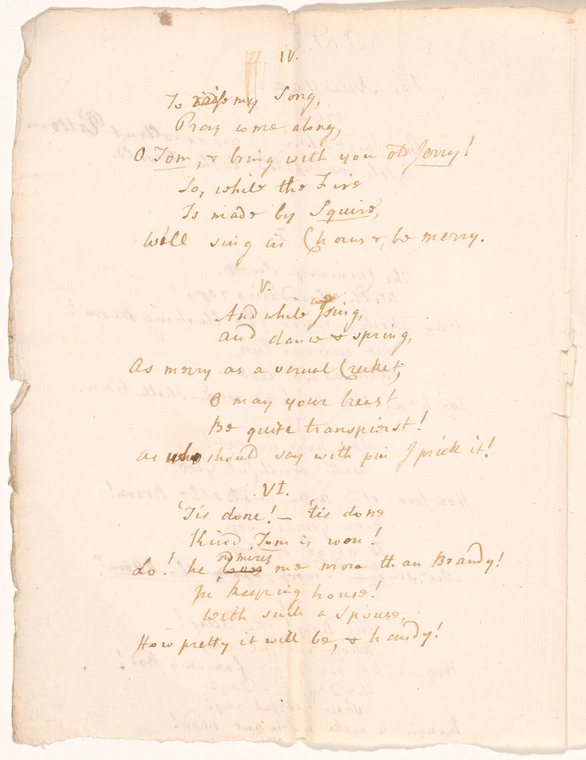 IV.
To raise my Song,
Pray come along,
O Tom, & bring with you old Jerry!
So, while the Fire
Is made by Squire,
We'll sing in Chorus, & be merry.
V.
And while we sing,
and dance & spring,
As merry as a vernal Cricket,
O may your breast
Be quite transpierst!
as who should say with pin I prick it!
VI.
'Tis done! – 'tis done
Kind Tom is won!
Lo! he admires loves me more than Brandy!
In keeping house!
With such a Spouse,
How pretty it will be, & handy!